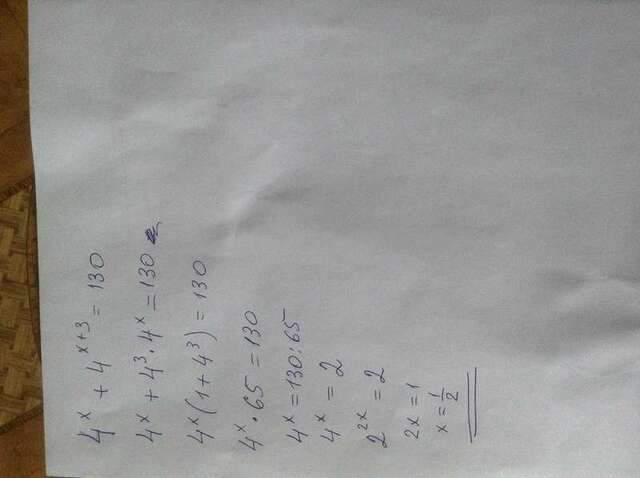 4^x + 4^{x+3} = 130
4^x + 4^3 · 4^x = 130
4^x (1 + 4^3) = 130
4^x · 65 = 130
4^x = 130 : 65
4^x = 2
2^{2x} = 2
2x = 1
x = 1/2